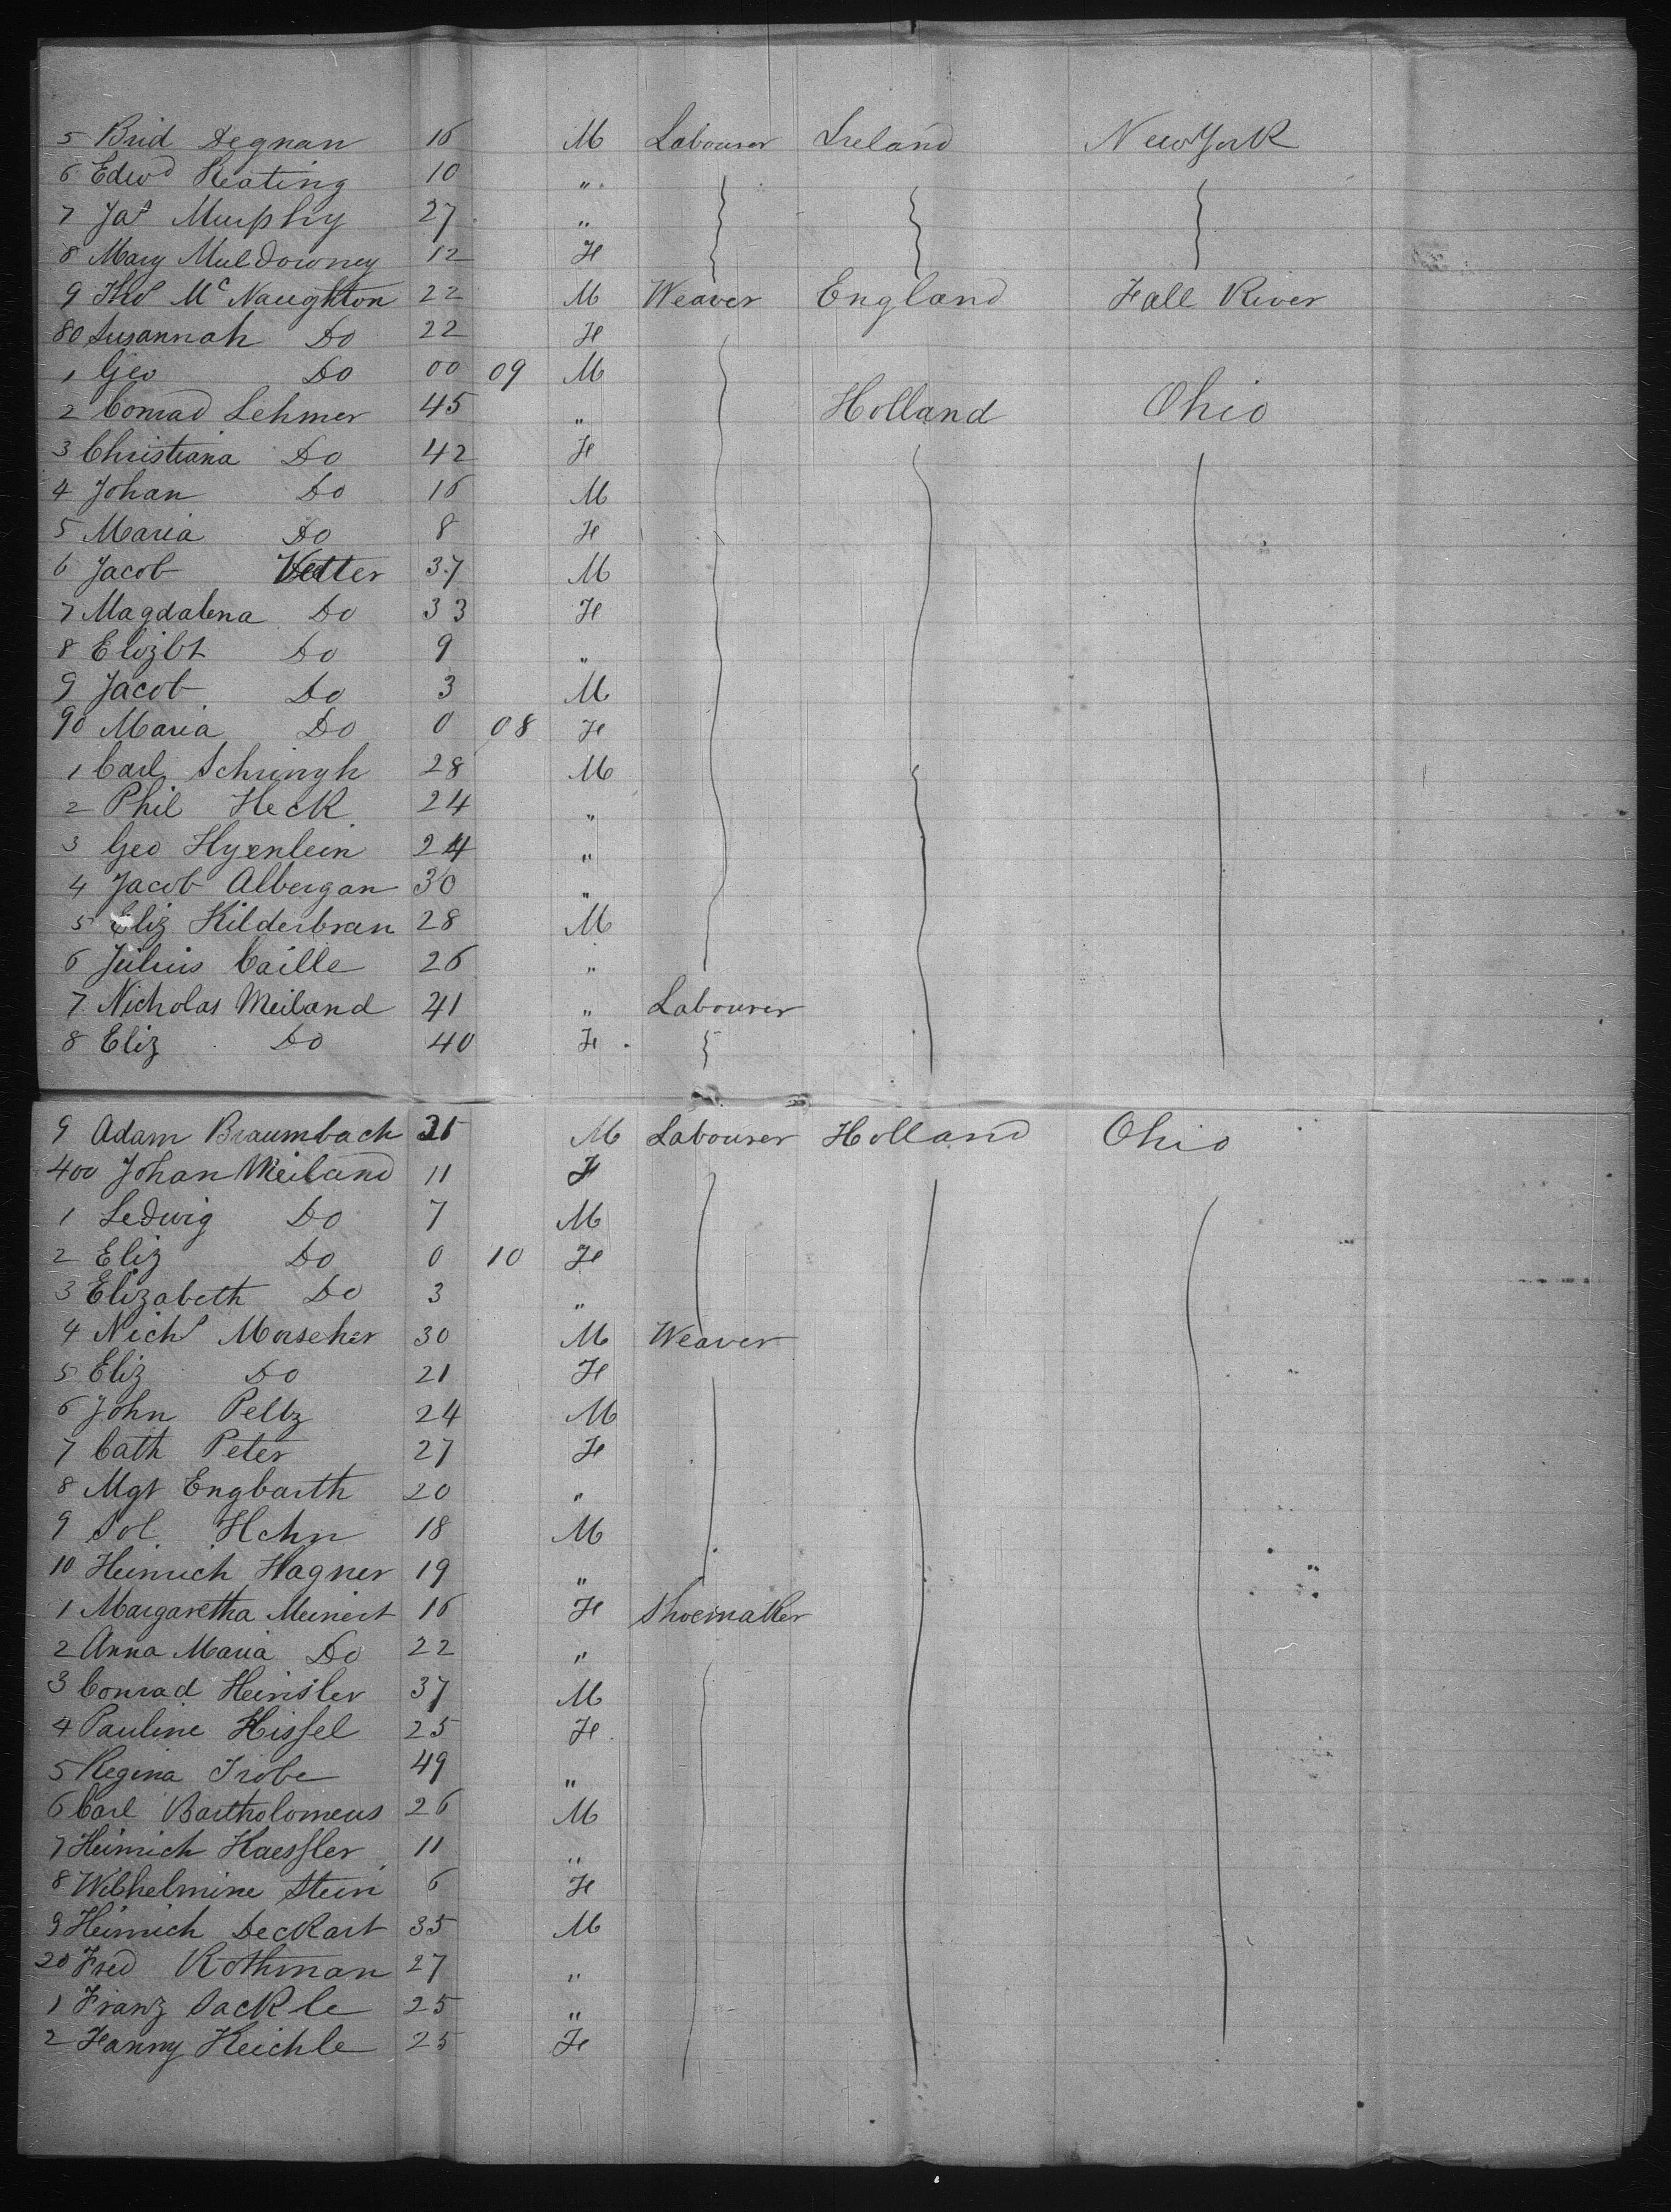 5 Brid Degnan 16 M Labourer Ireland New York
6 Edwd Keating 10 "
7 Jas Murphy 27 "
8 Mary Muldowney 12 F
9 Thos McNaughton 22 M Weaver England Fall River
80 Susannah Do 22 F
1 Geo Do 00 09 M
2 Conrad Lehmer 45 " Holland Ohio
3 Christiana Do 42 F
4 Johan Do 16 M
5 Maria Do 8 F
6 Jacob Vetter 37 M
7 Magdalena Do 33 F
8 Elizbt Do 9 "
9 Jacob Do 3 M
90 Maria Do 0 08 F
1 Carl Schringh 28 M
2 Phil Heck 24 "
3 Geo Hyenlein 24 "
4 Jacob Albergan 30 "
5 Eliz Hilderbran 28 M
6 Julius Caille 26 "
7 Nicholas Meiland 41 " Labourer
8 Eliz Do 40 F
9 Adam Braumbach M Labourer Holland Ohio
400 Johan Meiland 11 F
1 Ledwig Do 7 M
2 Eliz Do 0 10 F
3 Elizabeth Do 3 "
4 Nichs Morscher 30 M Weaver
5 Eliz Do 21 F
6 John Peltz 24 M
7 Cath Peter 27 F
8 Mgt Engbarth 20 "
9 Sol Hehn 18 M
10 Heinrich Wagner 19 "
1 Margaretha Meinert 16 F Shoemaker
2 Anna Maria Do 22 "
3 Conrad Heinsler 37 M
4 Pauline Hissel 25 F
5 Regina Trobe 49 "
6 Carl Bartholomeus 26 M
7 Heinrich Haessler 11 "
8 Wilhelmine Stein 6 F
9 Heinrich Deckart 35 M
20 Fred Rothman 27 "
1 Franz Sackle 25 "
2 Fanny Keichle 25 F